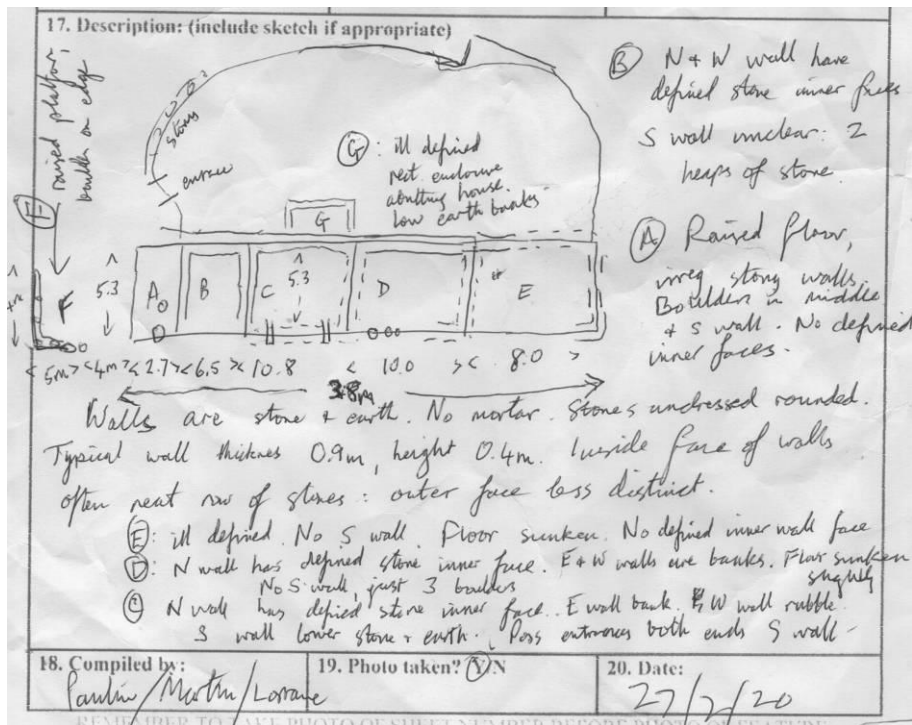 17. Description: (include sketch if appropriate)
raised platform
boulder on edge
F
stony
entrance
G : ill defined
rect enclosure
abutting house.
low earth banks
B N + W wall have
defined stone inner faces
S wall unclear: 2
heaps of stone
A Raised floor,
irreg stony walls.
Boulders in middle
+ S wall. No defined
inner faces.
G
F
5.3
A
B
C
5.3
D
E
< 5m > < 4m > < 2.7 > < 6.5 > < 10.8 < 10.0 > < 8.0 >
38m
Walls are stone + earth. No mortar. Stones undressed rounded.
Typical wall thicknes 0.9m, height 0.4m. Inside face of walls
often neat row of stones : outer face less distinct.
E : ill defined. No S wall. Floor sunken. No defined inner wall face
D : N wall has defined stone inner face. E + W walls are banks. Floor sunken
slightly
No S wall, just 3 boulders
C N wall has defied stone inner face. E wall bank. W wall rubble.
S wall lower stone + earth. Poss entrances both ends S wall -
18. Compiled by:
19. Photo taken? Y/N
20. Date:
Pauline/Martin/Lorraine
27/7/20
REMEMBER TO TAKE PHOTO OF SHEET NUMBER BEFORE PHOTO OF FEATURE